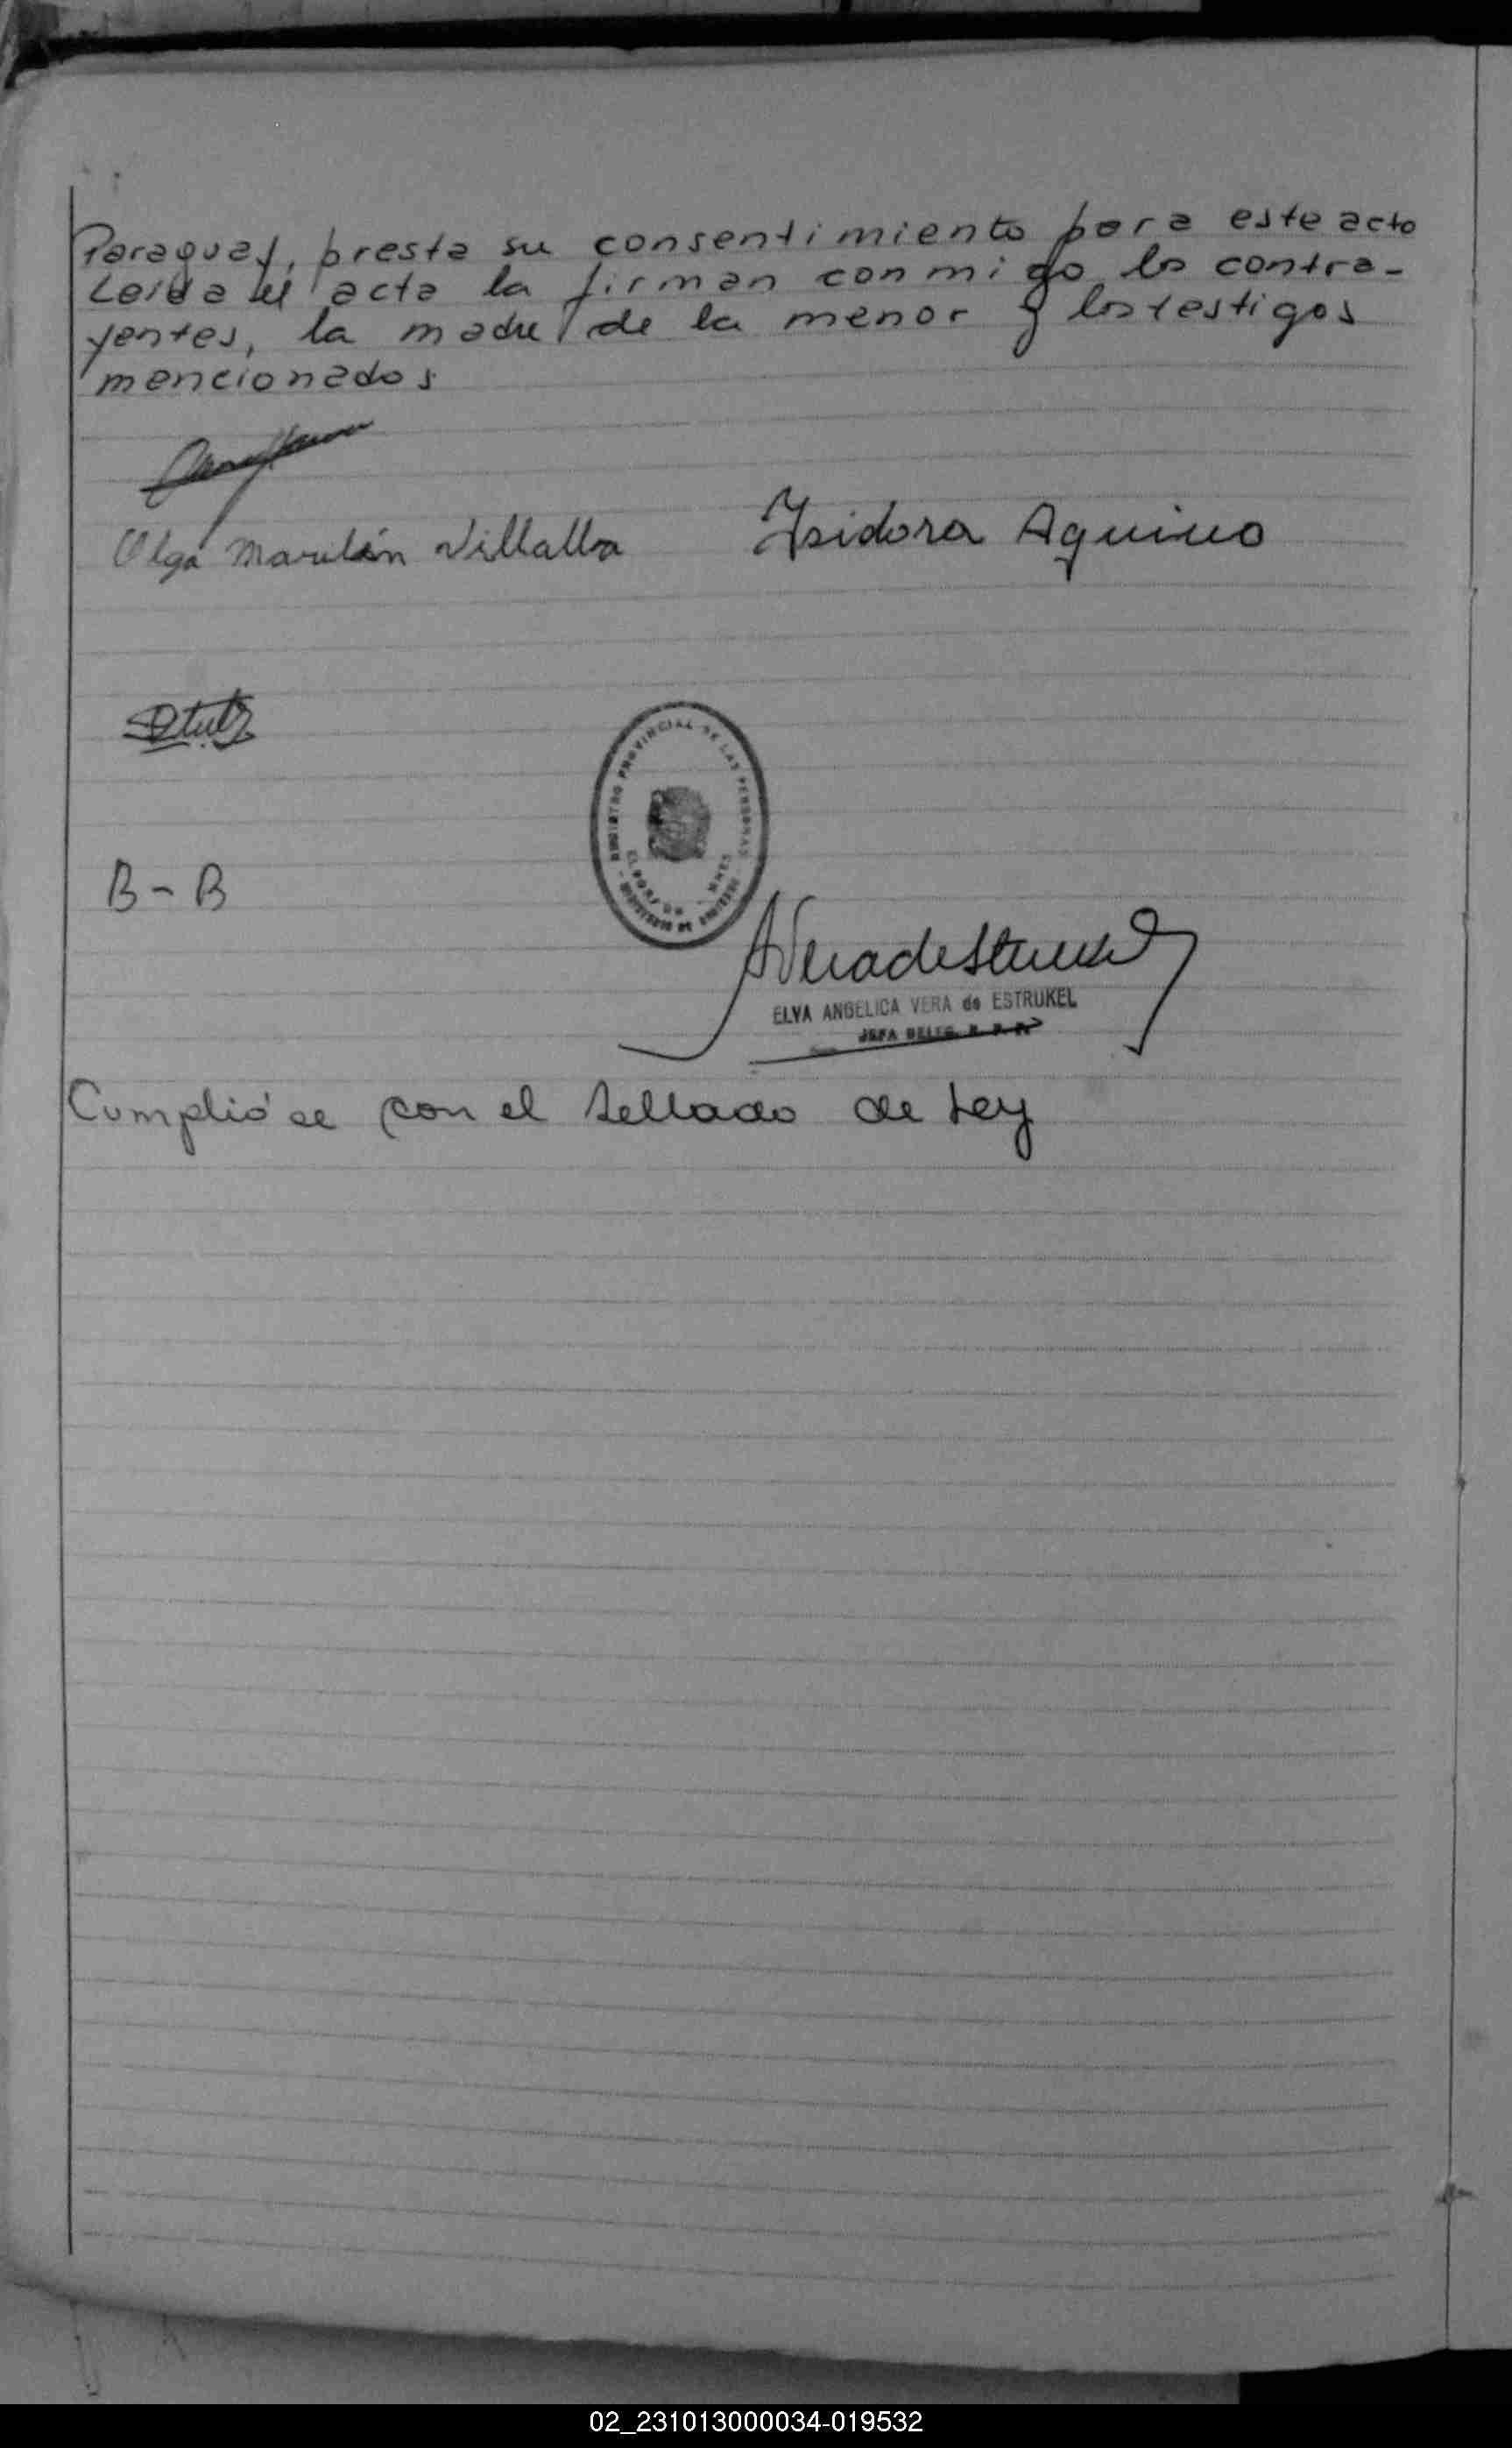 Paraguay, presta su consentimiento para este acto
Leida el acta la firman conmigo los contra-
yentes, la madre de la menor y los testigos
mencionados
Olga Marilin Villalba Isidora Aquino
B - B
REGISTRO PROVINCIAL DE LAS PERSONAS
ELVA ANGELICA VERA de ESTRUKEL
JEFA DELEG. R. P. P.
Cumplióse con el sellado de Ley
02_231013000034-019532